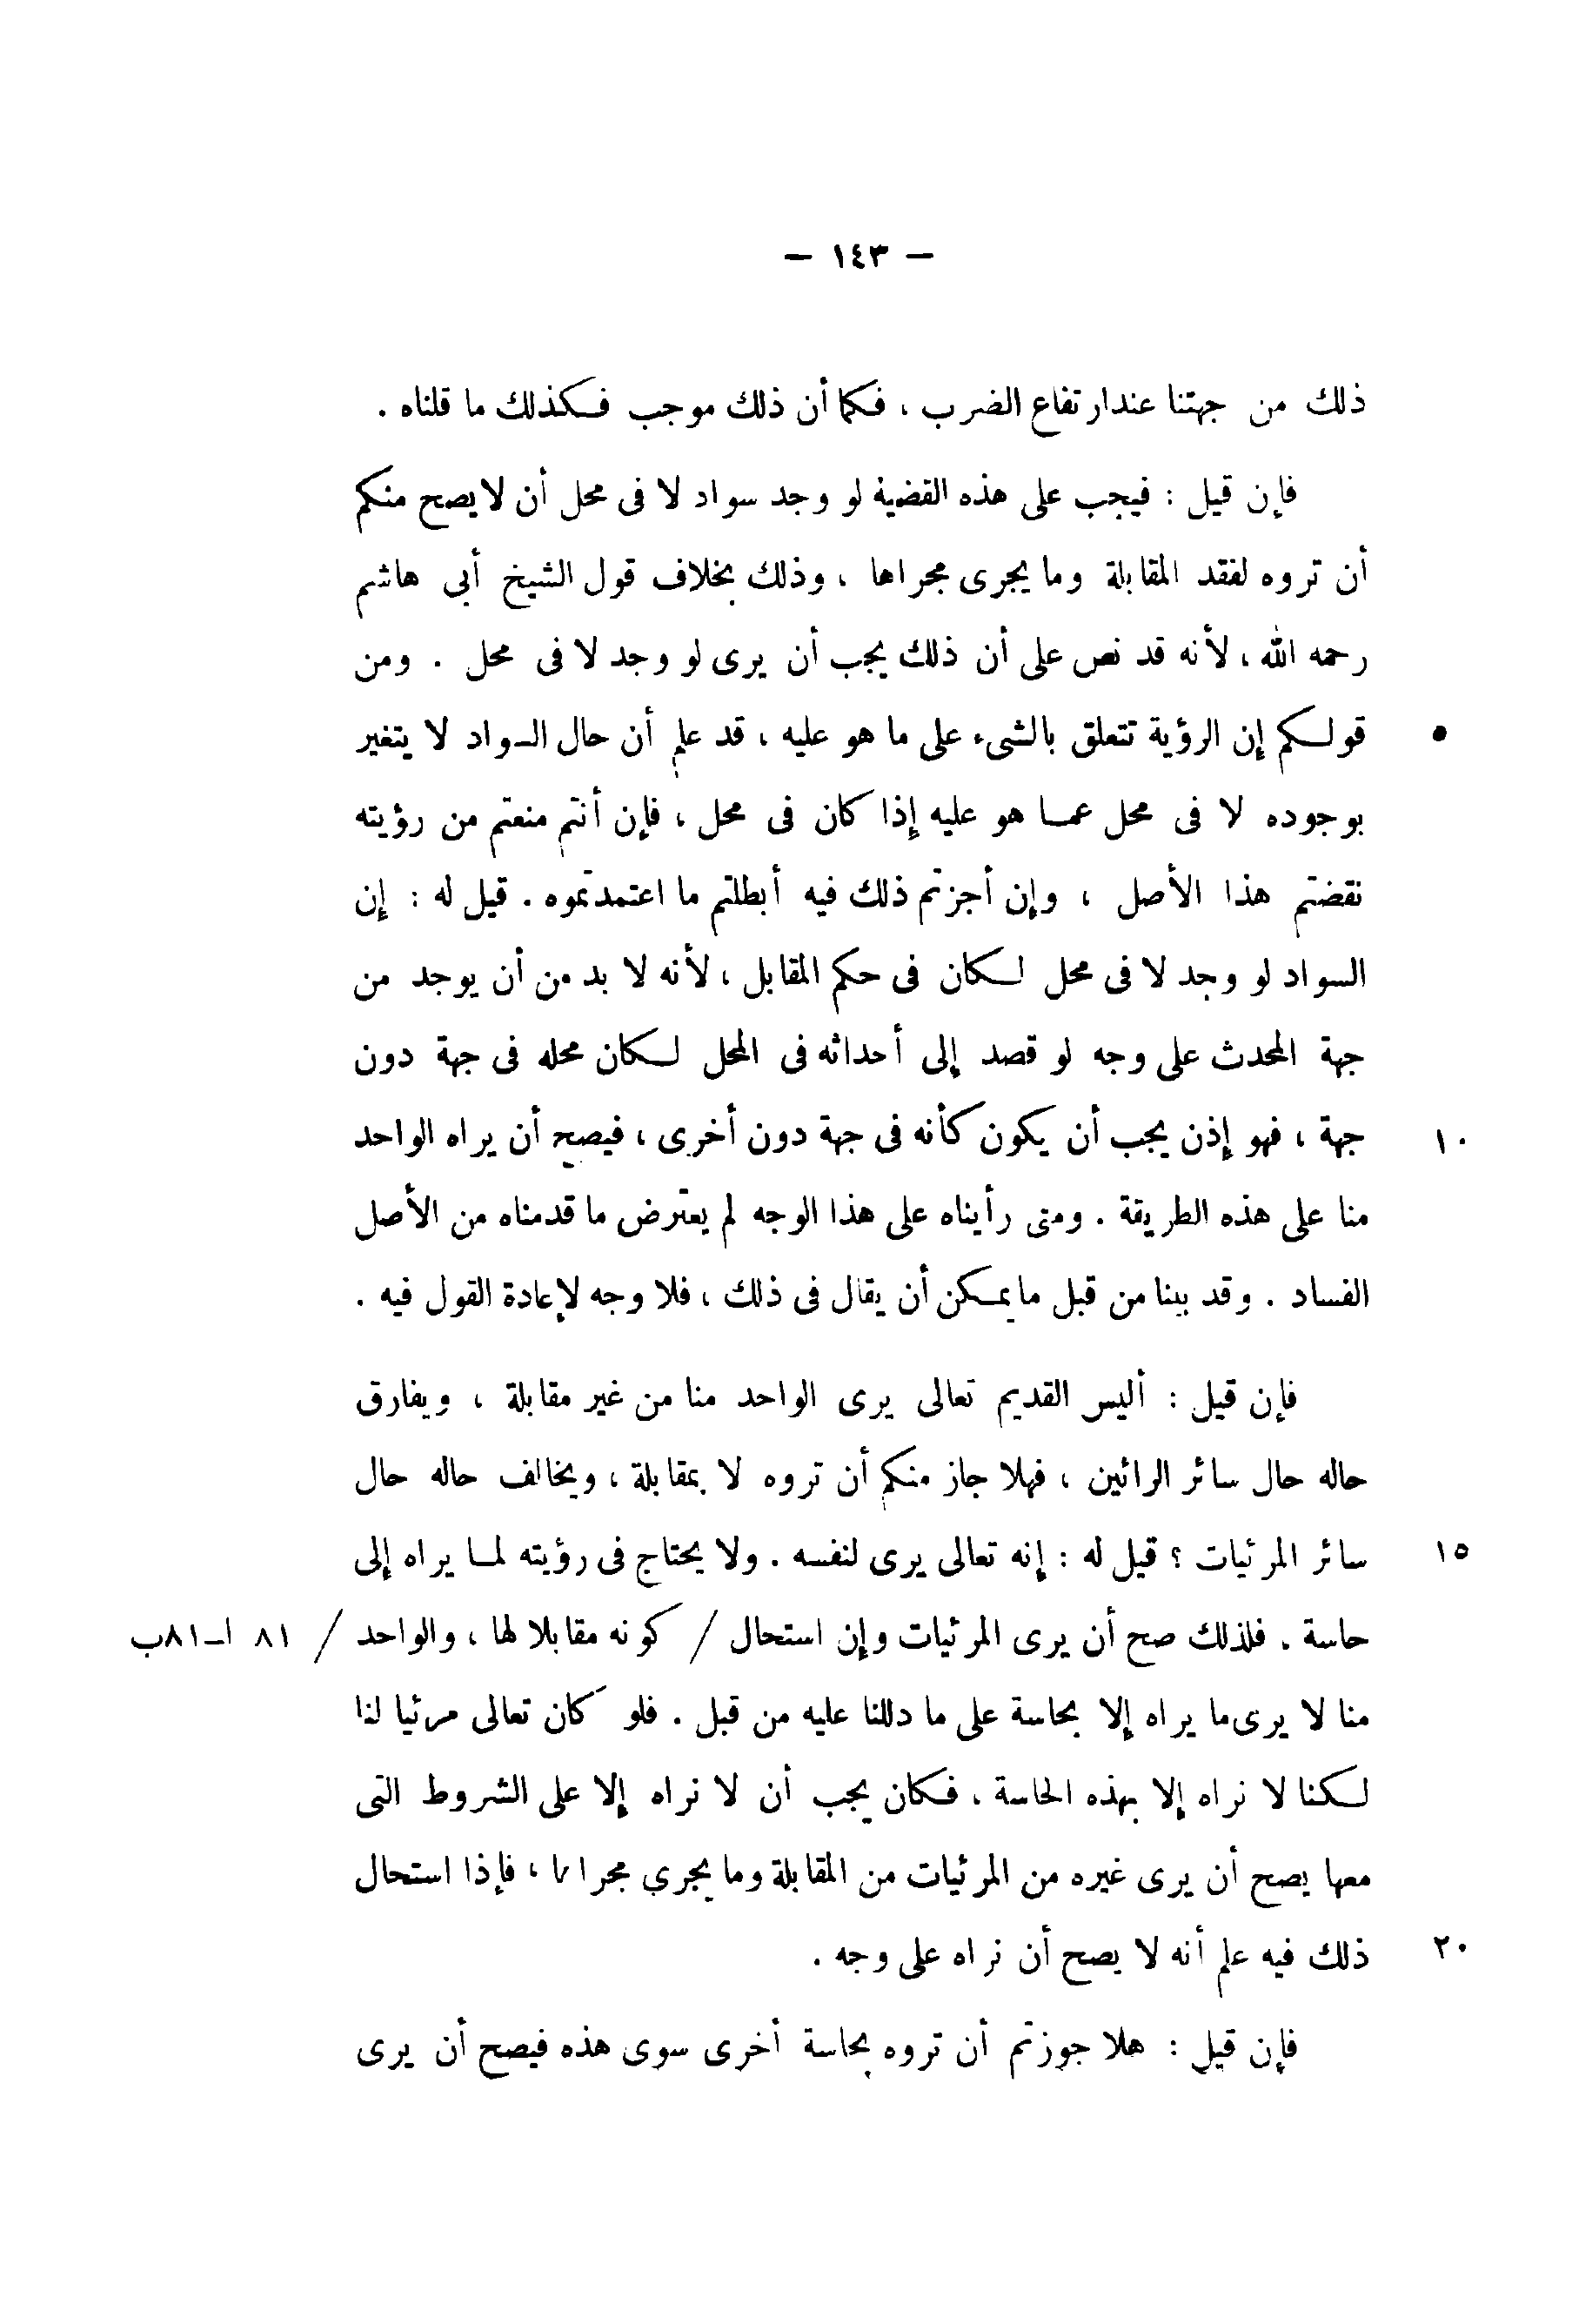 — ١٤٣ —
ذلك من جهتنا عند ارتفاع الضرب ، فكما أن ذلك موجب فكذلك ما قلناه .
فإن قيل : فيجب على هذه القضية لو وجد سواد لا فى محل أن لا يصح منكم
أن تروه لفقد المقابلة وما يجرى مجراها ، وذلك بخلاف قول الشيخ أبى هاشم
رحمه الله ، لأنه قد نص على أن ذلك يجب أن يرى لو وجد لا فى محل . ومن
قولكم إن الرؤية تتعلق بالشىء على ما هو عليه ، قد علم أن حال السواد لا يتغير ٥
بوجوده لا فى محل عما هو عليه إذا كان فى محل ، فإن أنتم منعتم من رؤيته
نقضتم هذا الأصل ، وإن أجزتم ذلك فيه أبطلتم ما اعتمدتموه . قيل له : إن
السواد لو وجد لا فى محل لكان فى حكم المقابل ، لأنه لا بد من أن يوجد من
جهة المحدث على وجه لو قصد إلى أحداثه فى المحل لكان محله فى جهة دون
جهة ، فهو إذن يجب أن يكون كأنه فى جهة دون أخرى ، فيصح أن يراه الواحد ١٠
منا على هذه الطريقة . ومتى رأيناه على هذا الوجه لم يعترض ما قدمناه من الأصل
الفساد . وقد بينا من قبل ما يمكن أن يقال فى ذلك ، فلا وجه لإعادة القول فيه .
فإن قيل : أليس القديم تعالى يرى الواحد منا من غير مقابلة ، ويفارق
حاله حال سائر الرائين ، فهلا جاز منكم أن تروه لا بمقابلة ، ويخالف حاله حال
سائر المرئيات ؟ قيل له : إنه تعالى يرى لنفسه . ولا يحتاج فى رؤيته لما يراه إلى ١٥
حاسة . فلذلك صح أن يرى المرئيات وإن استحال / كونه مقابلا لها ، والواحد / ٨١ ا–٨١ب
منا لا يرى ما يراه إلا بحاسة على ما دللنا عليه من قبل . فلو كان تعالى مرئيا لنا
لكنا لا نراه إلا بهذه الحاسة ، فكان يجب أن لا نراه إلا على الشروط التى
معها يصح أن يرى غيره من المرئيات من المقابلة وما يجرى مجراها ، فإذا استحال
ذلك فيه علم أنه لا يصح أن نراه على وجه . ٢٠
فإن قيل : هلا جوزتم أن تروه بحاسة أخرى سوى هذه فيصح أن يرى